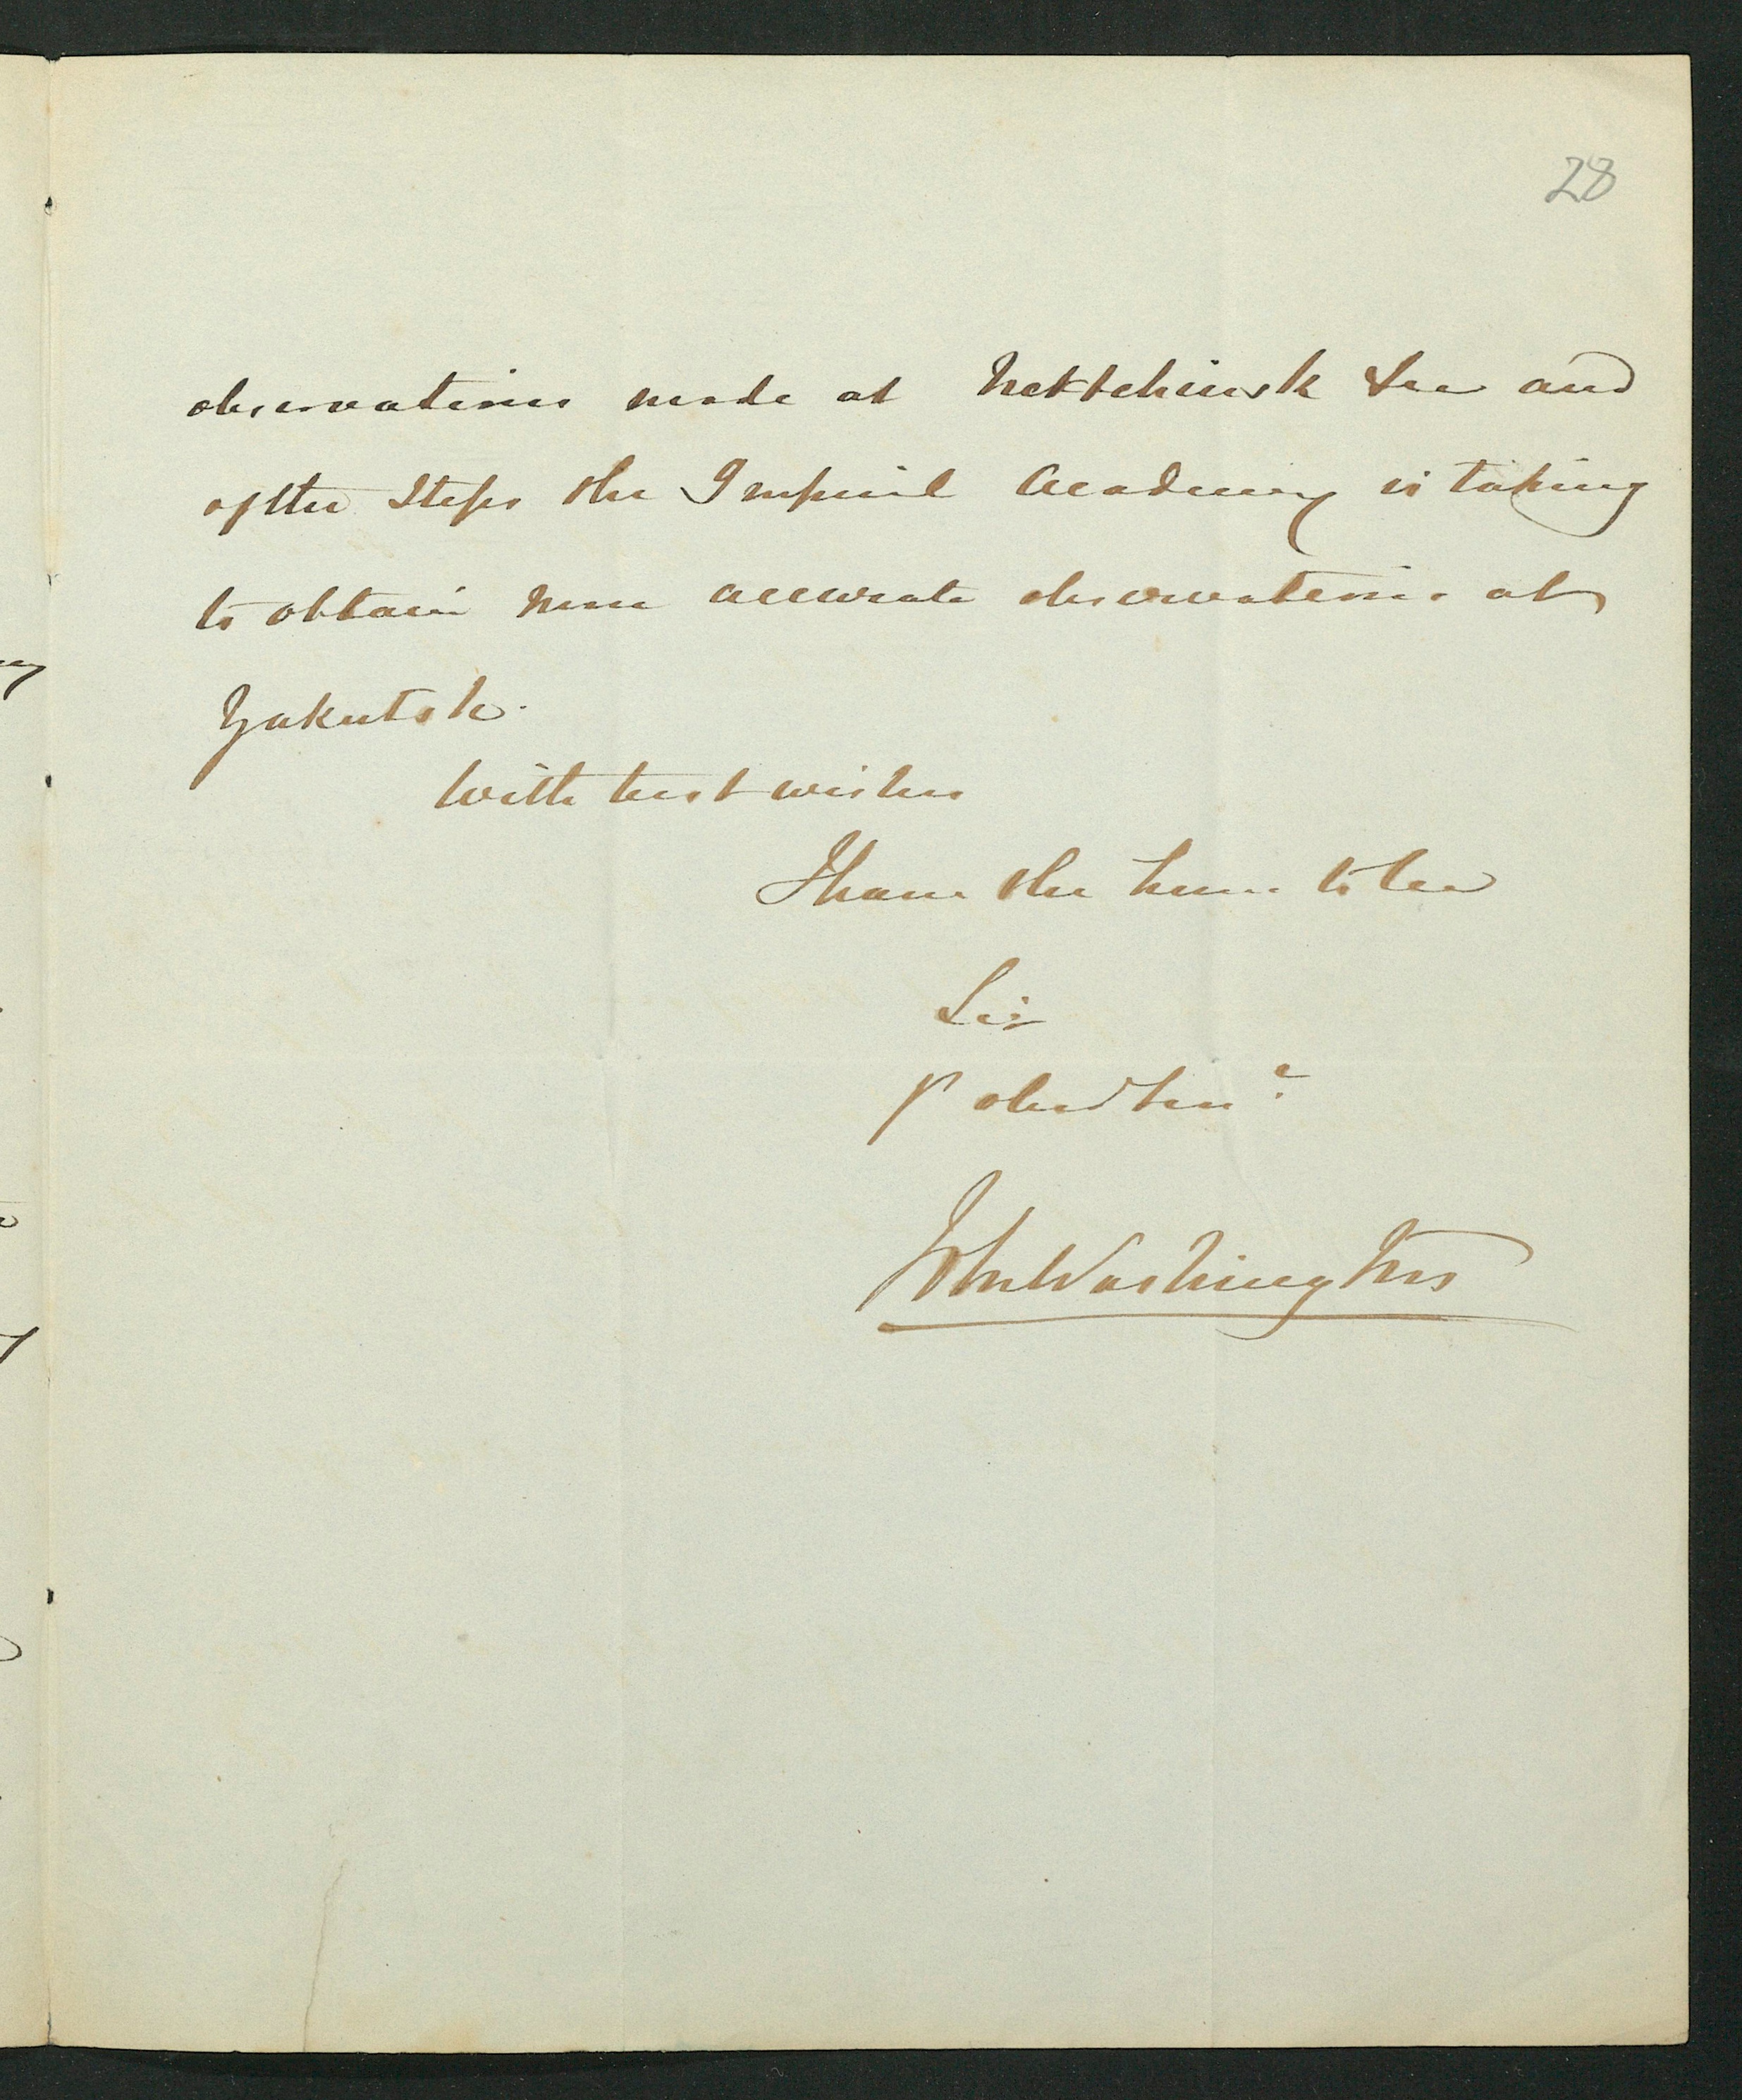 28
observations made at Nertchinsk &c and
of the Steps the Imperial Academy is taking
to obtain more accurate observations at
Yakutsk.
With best wishes
I have the hon. to be
Sir
Yr obed
John Washington